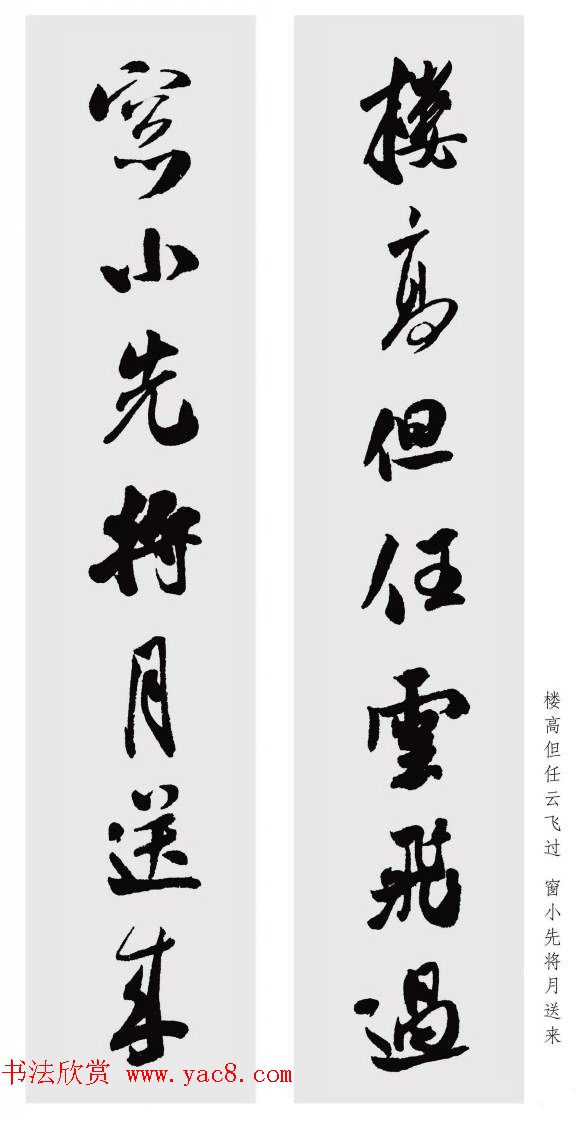 樓高但任雲飛過
窓小先將月送来
楼高但任云飞过 窗小先将月送来
书法欣赏 www.yac8.com